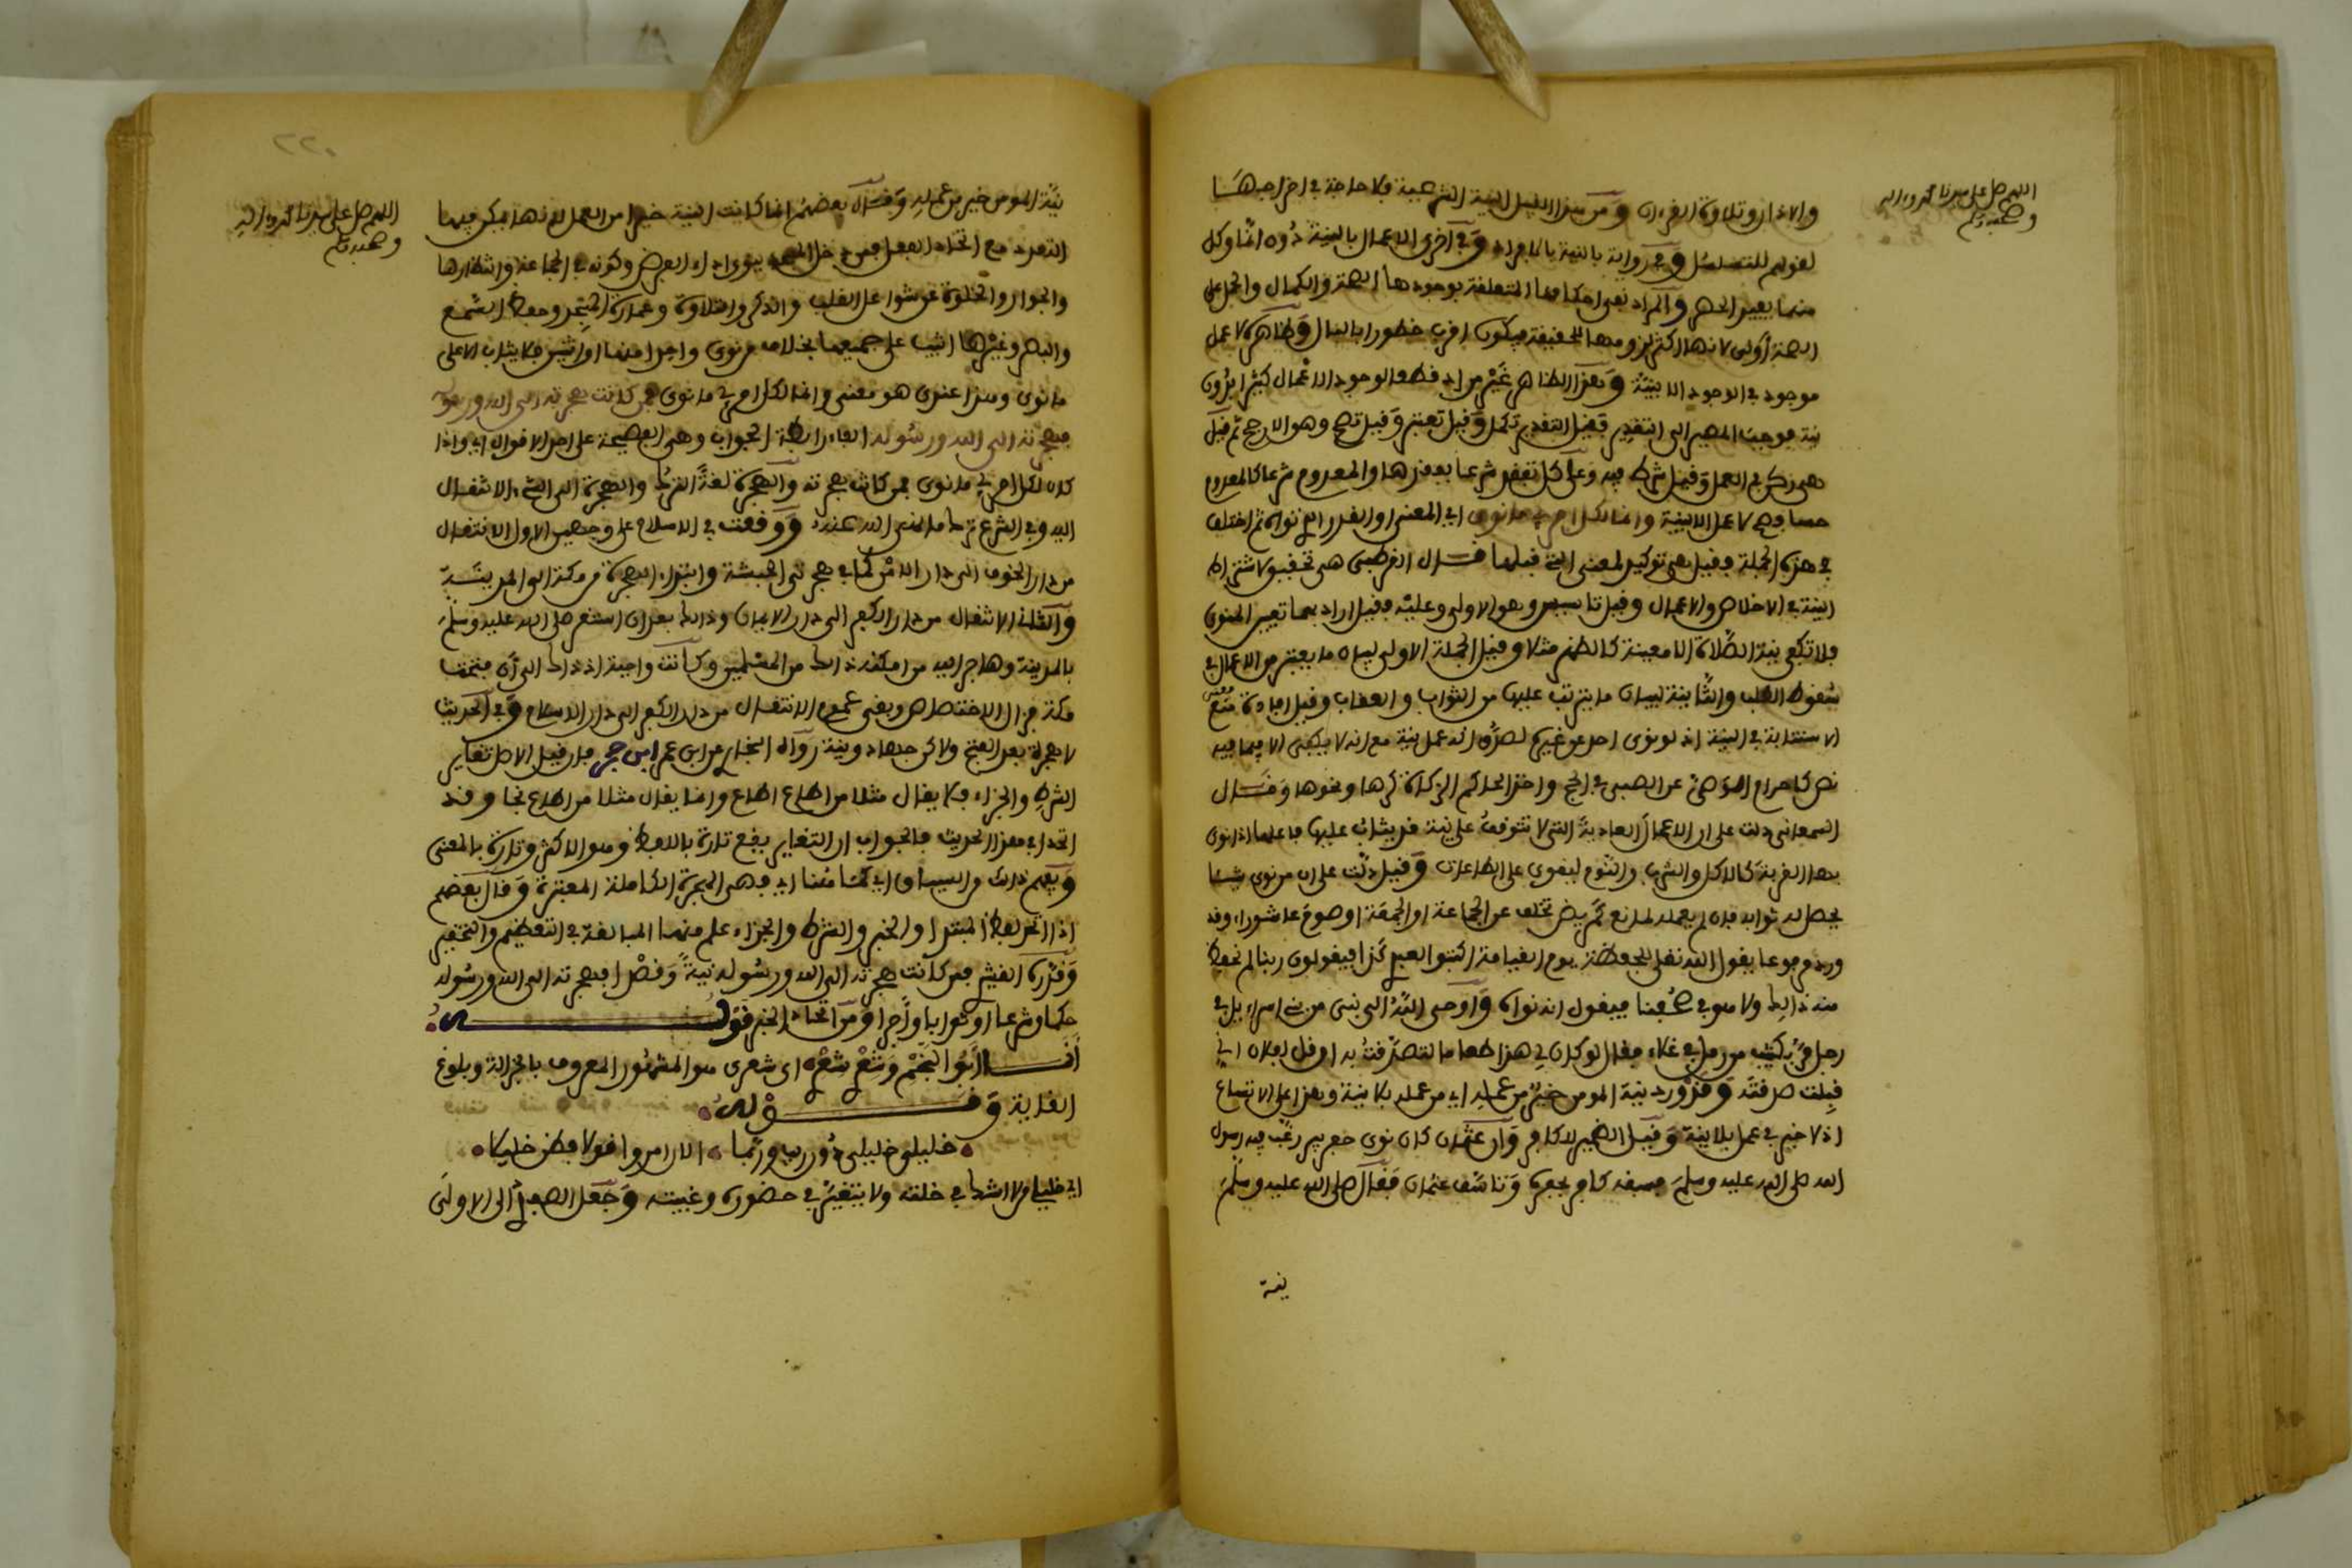 اللهم صل على سيدنا محمد وءاله
وصحبه وسلم
والاذكار وتلاوة القرءان ومن هذا القبيل النية الشرعية فلا حاجة في اخراجها
لقولهم للتسلسل وفي رواية بالنية بالافراد وفي أخرى الاعمال بالنية دون انما وكل
منهما يفيد الحصر والمراد نفي احكامها المتعلقة بوجودها الصحة والكمال والحمل على
الصحة أولى لانها اكثر لزوما للحقيقة فيكون اقرب خطورا بالبال وظاهره لا عمل
موجود في الوجود الا بنية وهذا الظاهر غير مراد قطعا لوجود الاعمال كثيرا بدون
نية فوجب المصير الى التقدير فقيل التقدير تكمل وقيل تعتبر وقيل تصح وهو الارجح ثم قيل
هي ركن في العمل وقيل شرط فيه وعلى كل تفقد شرعا بفقدها والمعدوم شرعا كالمعدوم
حسا فصح لا عمل الا بنية وانما لكل امرئ ما نوى اي المعنى او القدر الذي نواه ثم اختلف
في هذه الجملة فقيل هي توكيد لمعنى التي قبلها قال القرطبي هي تحقيق لاشتراط
النية في الاخلاص والاعمال وقيل تاسيس وهو الاولى وعليه فقيل اراد بها تعيين المنوي
فلا تكفي نية الصلاة الا معينة كالظهر مثلا وقيل الجملة الاولى لبيان ما يعتبر من الاعمال في
سقوط الطلب والثانية لبيان ما يترتب عليها من الثواب والعقاب وقيل افادة منع
معنى
الاستنابة في النية اذ لو نوى احد عن غيره لصدق انه عمل بنية مع انه لا يكفي الا فيما فيه
نص كاحرام الوصي عن الصبي في الحج واخذ الحاكم الزكاة كرها ونحوها وقال
السمعاني دلت على ان الاعمال العادية التي لا تتوقف على نية قد يثاب عليها فاعلها اذا نوى
بها القربة كالاكل والشرب والنوم ليقوى على الطاعات وقيل دلت على ان من نوى شيئا
يحصل له ثوابه فان لم يعمله لمانع كمريض تخلف عن الجماعة او الجمعة او صوم عاشوراء وقد
ورد مرفوعا يقول الله تعالى للحفظة يوم القيامة اكتبوا لعبدي كذا فيقولون ربنا لم نحفظ
منه ذالك ولا هو في صحفنا فيقول انه نواه وأوحى الله الى نبي من بني اسراءيل في
رجل مر بكثيب من رمل في غلاء فقال لو كان لي هذا طعاما لتصدقت به ان قل لفلان اني
قبلت صدقته وقد ورد نية المومن خير من عمله اي من عمله بلا نية وهذا على الاتساع
اذ لا خير في عمل بلا نية وقيل الضمير للكافر وان عثمان كان نوى حفر بير رغب فيه رسول
الله صلى الله عليه وسلم فسبقه كافر بحفره وتاسف عثمان فقال صلى الله عليه وسلم
نية
٢٢٠
اللهم صل على سيدنا محمد وءاله
وصحبه وسلم
نية المومن خير من عمله وقال بعضهم انما كانت النية خيرا من العمل لانها يمكن فيها
التعدد مع اتحاد الفعل فمن دخل المسجد ينوي اداء الفرض وكونه في الجماعة وانتظارها
والجوار والخلوة عن شواغل القلب والذكر والتلاوة وعمارة المسجد وحفظ السمع
والبصر وغيرها اثيب على جميعها بخلاف من نوى واحدا منها او اثنين فلا يثاب الا على
ما نوى وهذا عندي هو معنى وانما لكل امرئ ما نوى فمن كانت هجرته الى الله ورسوله
فهجرته الى الله ورسوله الفاء رابطة الجواب وهي الفصيحة على احد الاقوال اي واذا
كان لكل امرئ ما نوى فمن كانت هجرته والهجرة لغة الترك والهجرة الى الشيء الانتقال
اليه وفي الشرع ترك ما نهى الله عنه ووقعت في الاسلام على وجهين الاول الانتقال
من دار الخوف الى دار الامن كما في هجرتي الحبشة وابتداء الهجرة من مكة الى المدينة
والثاني الانتقال من دار الكفر الى دار الايمان وذالك بعد ان استقر صلى الله عليه وسلم
بالمدينة وهاجر اليه من امكنه ذالك من المسلمين وكانت واجبة اذ ذاك الى أن فتحت
مكة فزال الاختصاص وبقي عموم الانتقال من دار الكفر الى دار الاسلام وفي الحديث
لا هجرة بعد الفتح ولاكن جهاد ونية رواه البخاري عن ابن عمر ابن حجر فان قيل الاصل تغاير
الشرط والجزاء فلا يقال مثلا من اطاع اطاع وانما يقال مثلا من اطاع نجا وقد
اتحدا في هذا الحديث فالجواب ان التغاير يقع تارة باللفظ وهو الاكثر وتارة بالمعنى
ويفهم ذالك من السياق اي كما هنا اي فهي الهجرة الكاملة المعتبرة وقال بعضهم
اذا اتحد لفظ المبتدا والخبر والشرط والجزاء علم منهما المبالغة في التعظيم والتحقير
وقدره القشيري فمن كانت هجرته الى الله ورسوله نية وقصدا فهجرته الى الله ورسوله
حكما وشرعا او ثوابا وأجرا ومن اتحاد الخبر قول
أنا أبو النجم وشعري شعري اي شعري هو المشهور المعروف بالجزالة وبلوغ
الغاية وقوله
خليلي خليلي دون ريب وربما الان امرؤ قولا فظن خليلا
اي خليلي من لا اشك في خلته ولا يتغير في حضوري وغيبته وجعل الصعيدي الى الاولى